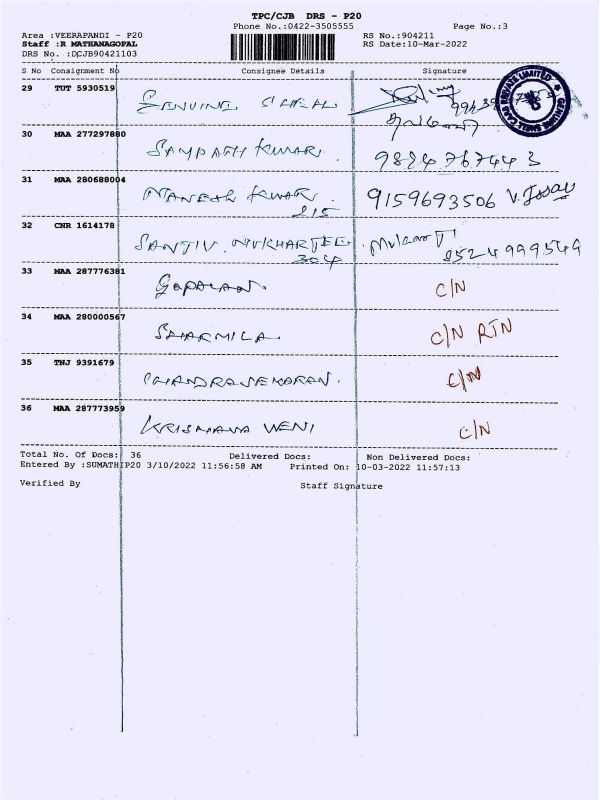 TPC/CJB DRS - P20
Phone No.:0422-3505555 Page No.:3
Area :VEERAPANDI - P20 RS No.:904211
Staff :R MATHANAGOPAL RS Date:10-Mar-2022
DRS No. :DCJB90421103
S No Consignment No Consignee Details Signature
29 TUT 5930519 GENUINE
30 MAA 277297880 SAMPATH KUMAR. 9884767443
31 MAA 280688004 MANESH KUMAR. 9159693506
215
32 CNR 1614178 SANJIV. MUKHARJEE
304 9524999549
33 MAA 287776381 GOPALAN. C/N
34 MAA 280000567 SHARMILA C/N RTN
35 TNJ 9391679 CHANDRASEKARAN. C/N
36 MAA 287773959 KRISHANA WENI C/N
Total No. Of Docs: 36 Delivered Docs: Non Delivered Docs:
Entered By :SUMATHIP20 3/10/2022 11:56:58 AM Printed On: 10-03-2022 11:57:13
Verified By Staff Signature